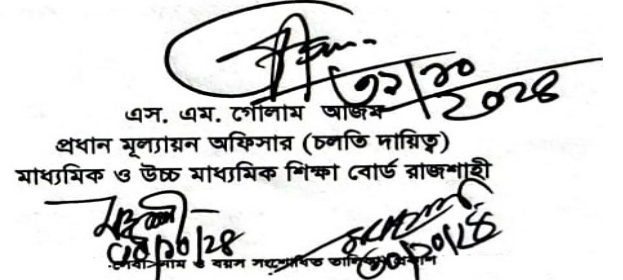 ৩১/১০
২০২৪
এস. এম. গোলাম আজম
প্রধান মূল্যায়ন অফিসার (চলতি দায়িত্ব)
মাধ্যমিক ও উচ্চ মাধ্যমিক শিক্ষা বোর্ড রাজশাহী
/১০/২৪ /১০/২৪
নাম ও বয়স সংশোধিত